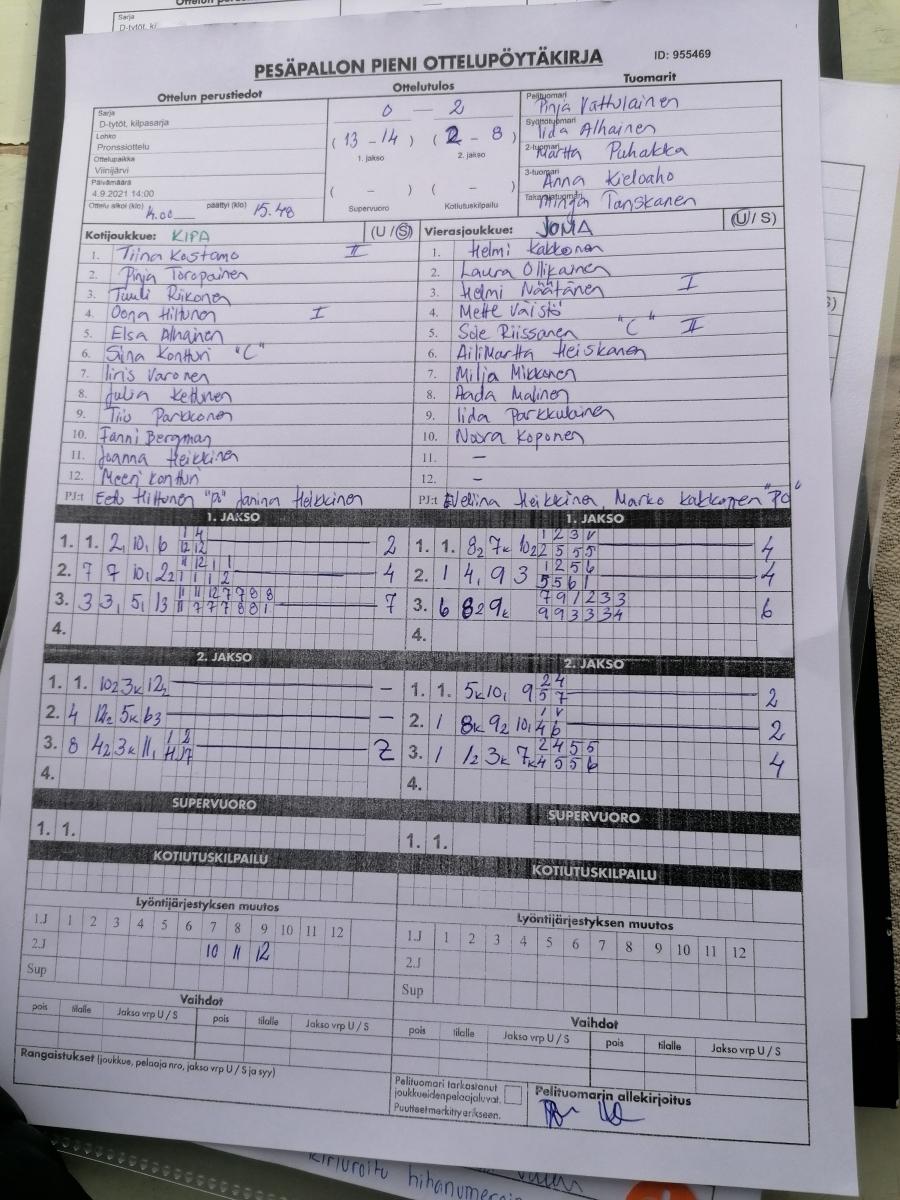 Sarja
D-tytöt, ki
PESÄPALLON PIENI OTTELUPÖYTÄKIRJA
ID: 955469
Ottelun perustiedot
Ottelutulos
Tuomarit
Sarja
D-tytöt, kilpasarja
Lohko
Pronssiottelu
Ottelupaikka
Viinijärvi
Päivämäärä
4.9.2021 14:00
Ottelu alkoi (klo) 14.00 päättyi (klo) 15.48
0 – 2
( 13 – 14 ) ( 2 – 8 )
1. jakso 2. jakso
( – ) ( – )
Supervuoro Kotiutuskilpailu
Pelituomari Pinja Vattulainen
Syöttötuomari Iida Alhainen
2-tuomari Martta Puhakka
3-tuomari Anna Kieloaho
Takarajatuomari Minja Tanskanen
Kotijoukkue: KIPA (U / S)
1. Tiina Kostamo II
2. Pinja Toropainen
3. Tuuli Riikonen
4. Oona Hiltunen I
5. Elsa Alhainen
6. Sina Kontturi "C"
7. Iiris Varonen
8. Julia Kettunen
9. Tiiu Parkkonen
10. Fanni Bergman
11. Joanna Heikkinen
12. Meeri Kontturi
PJ:t Eeto Hiltunen "PJ" Janina Heikkinen
Vierasjoukkue: JOMA (U / S)
1. Helmi Kakkonen
2. Laura Ollikainen
3. Helmi Näätänen I
4. Mette Väistö
5. Sole Riissanen "C" II
6. AiliMartta Heiskanen
7. Milja Mikkonen
8. Aada Malinen
9. Iida Parkkulainen
10. Noora Koponen
11. –
12. –
PJ:t Eveliina Heikkinen, Marko Kakkonen
1. JAKSO
1. 1. 2, 10, 6 2
2. 7 7 10, 2 4
3. 3 3, 5, 13 7
4.
1. JAKSO
1. 1. 82 7k 10 4
2. 1 4, 9 3 4
3. 6 8 2 9k 6
4.
2. JAKSO
1. 1. 10 2 3k 12 –
2. 4 12 5k 6 3 –
3. 8 4 2 3k 11, 2
4.
2. JAKSO
1. 1. 5k 10, 9 2
2. 1 8k 9 2 10, 2
3. 1 1 2 3k 7k 4
4.
SUPERVUORO
1. 1.
SUPERVUORO
1. 1.
KOTIUTUSKILPAILU
KOTIUTUSKILPAILU
Lyöntijärjestyksen muutos
1.J 1 2 3 4 5 6 7 8 9 10 11 12
2.J 10 11 12
Sup
Lyöntijärjestyksen muutos
1.J 1 2 3 4 5 6 7 8 9 10 11 12
2.J
Sup
Vaihdot
pois tilalle Jakso vrp U / S pois tilalle Jakso vrp U / S
Vaihdot
pois tilalle Jakso vrp U / S pois tilalle Jakso vrp U / S
Rangaistukset (joukkue, pelaaja nro, jakso vrp U / S ja syy)
Pelituomari tarkastanut
joukkueiden pelaajaluvat.
Puutteet merkitty erikseen.
Pelituomarin allekirjoitus